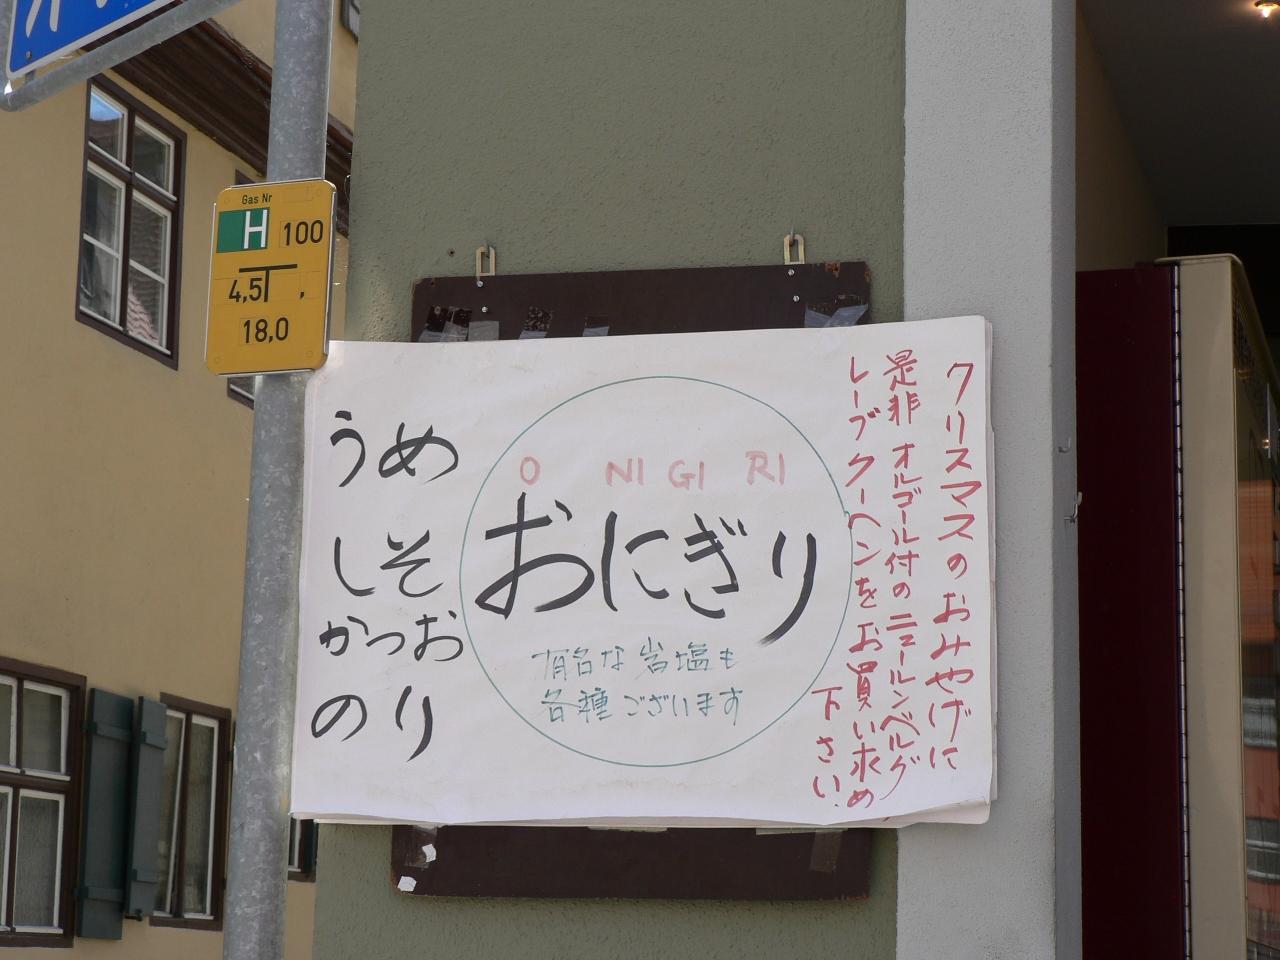 Gas Nr
H 100
4,5 ,
18,0
うめ
しそ
かつお
のり
O NIGIRI
おにぎり
有名な岩塩も
各種ございます
クリスマスのおみやげに
是非オルゴール付のニュールンベルグ
レーブクーヘンをお買い求め
下さい.